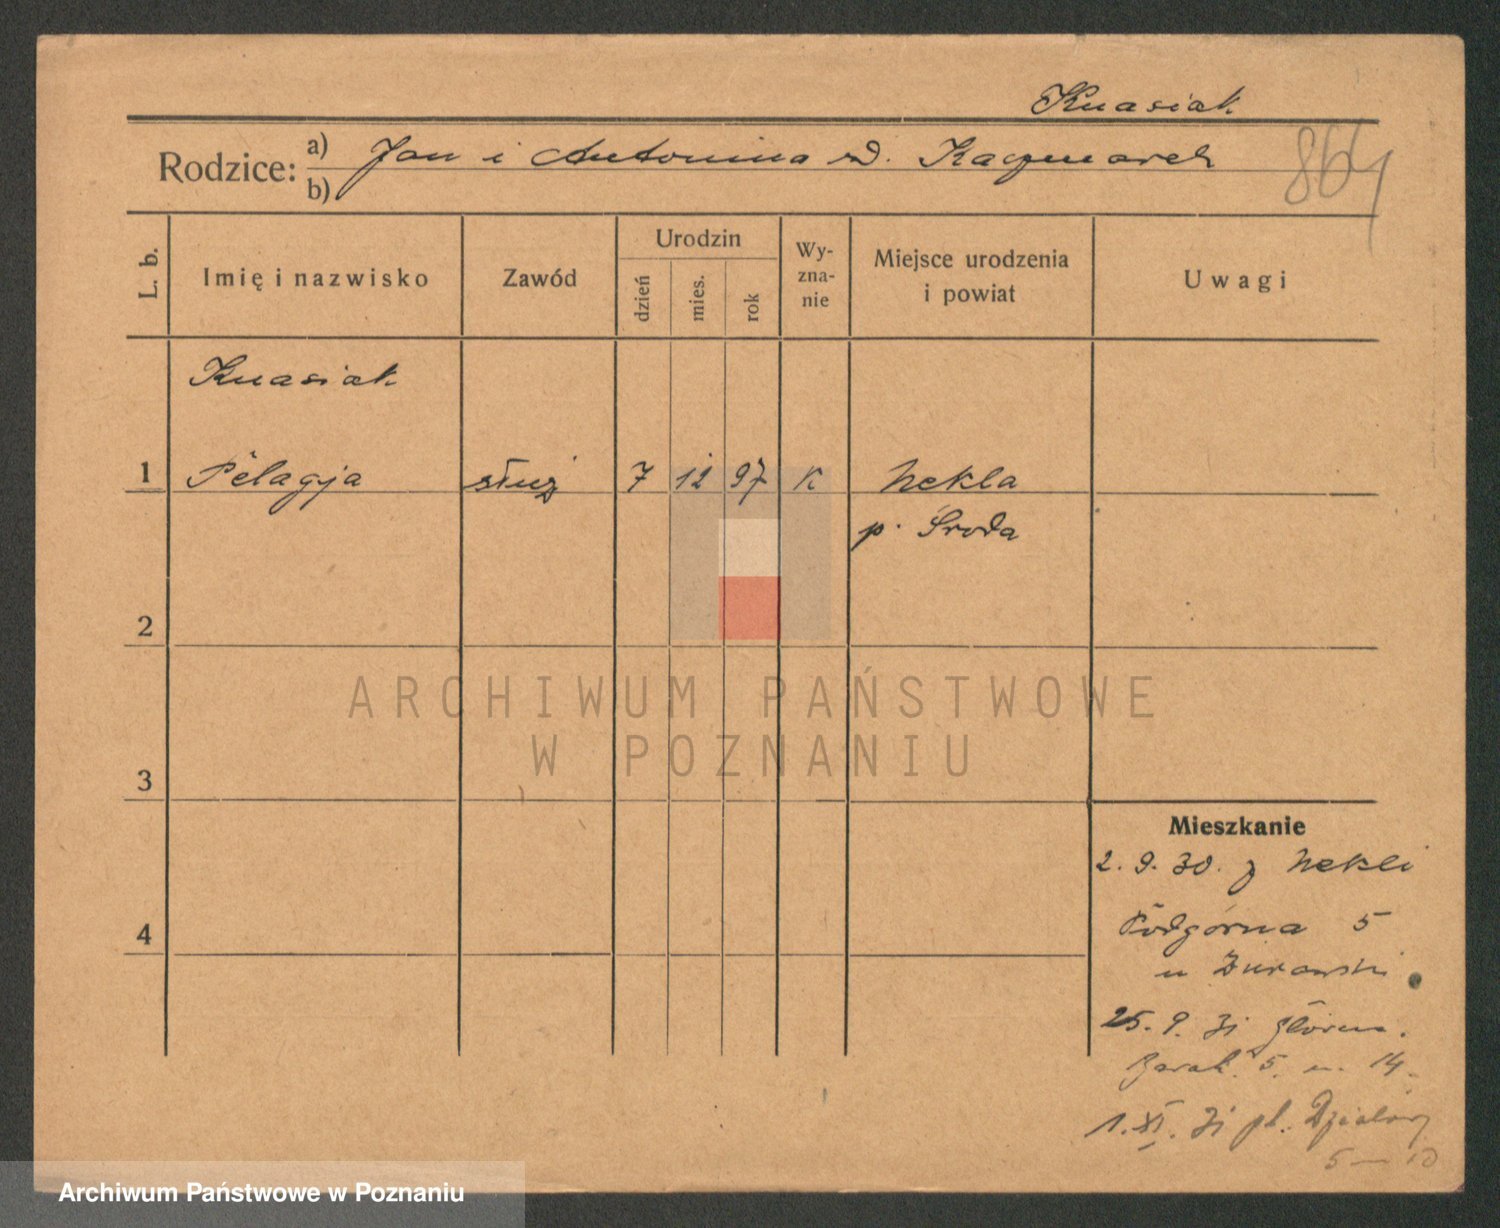 Knasiak
864
Rodzice: a) Jan i Antonina d. Kaczmarek
b)
L. b.
Imię i nazwisko
Zawód
Urodzin
dzień
mies.
rok
Wy-
zna-
nie
Miejsce urodzenia
i powiat
Uwagi
Knasiak
1 Pelagja służ 7 12 97 K Nekla
p. Środa
2
3
4
Mieszkanie
2. 9. 30. z Nekli
Podgórna 5
u Żurawski
25. 9. 31 Główna.
Barak. 5. m. 14.
1. XI. 31 pl. Działowy
5 — 10
ARCHIWUM PAŃSTWOWE
W POZNANIU
Archiwum Państwowe w Poznaniu